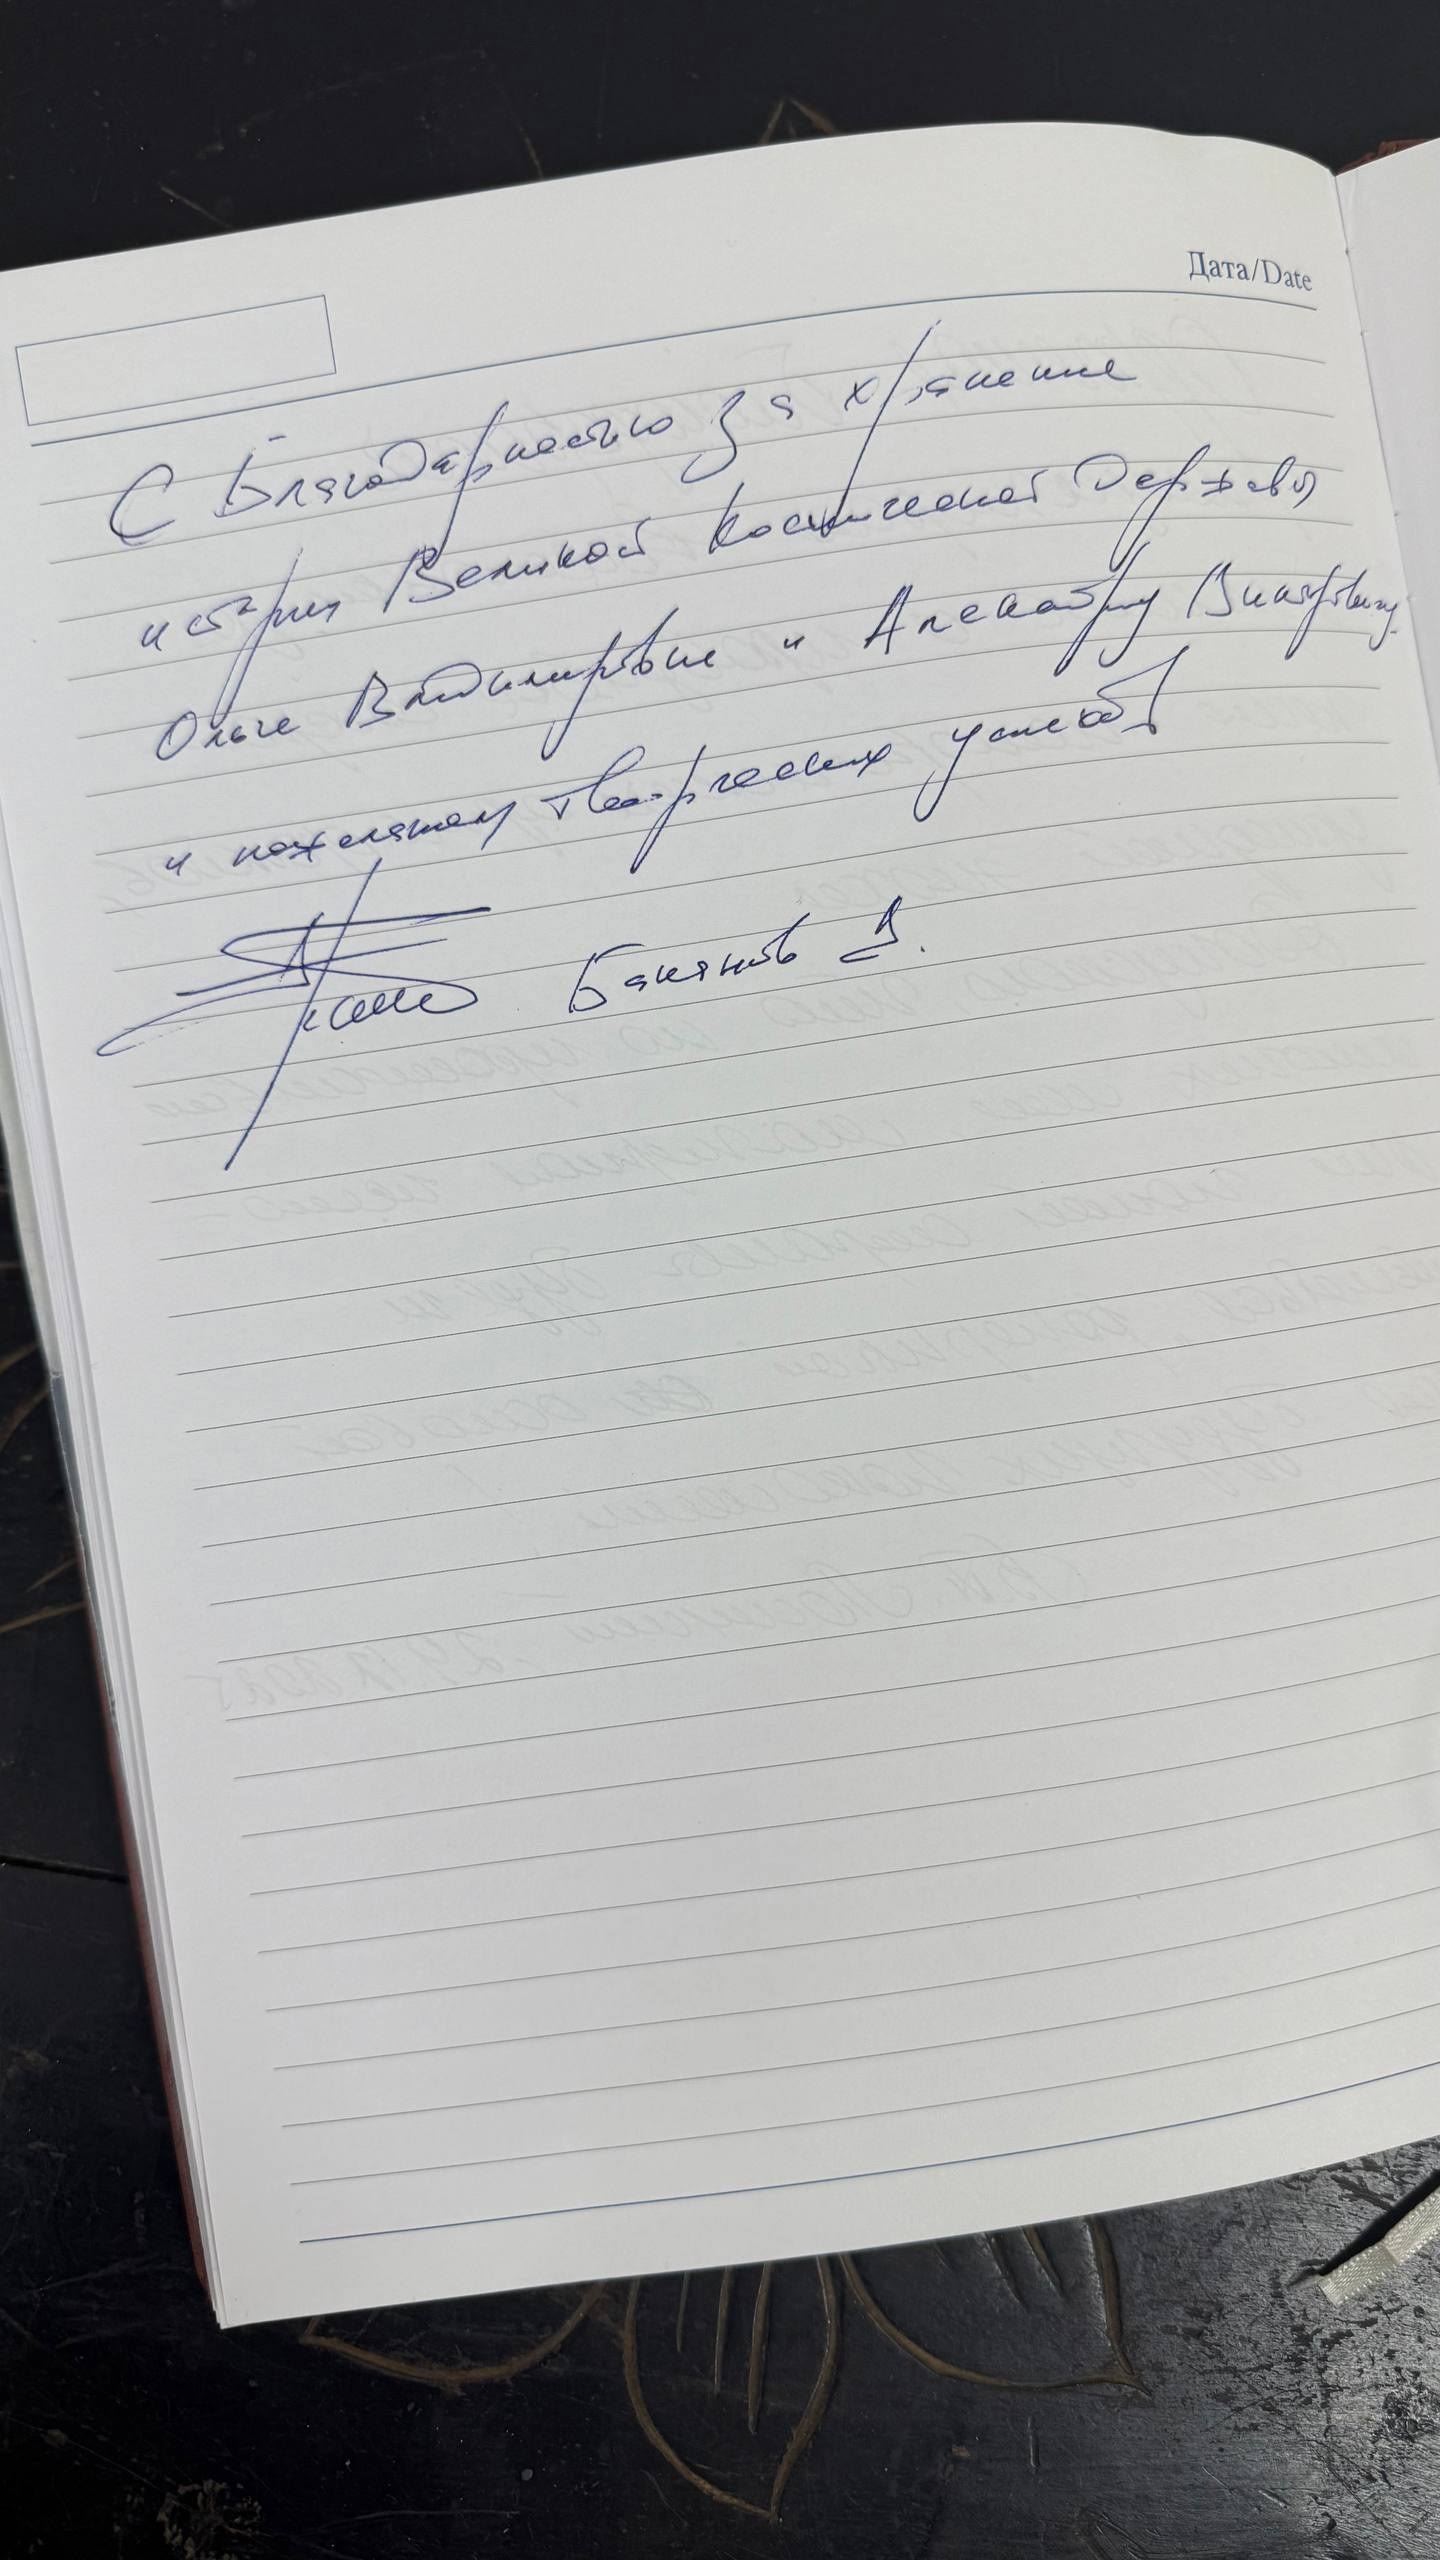 Дата/Date
С Благодарностью за хранение
истории Великой Космической Державы
Ольге Владимировне и Александру Викторовичу
и пожеланием творческих успехов
В.